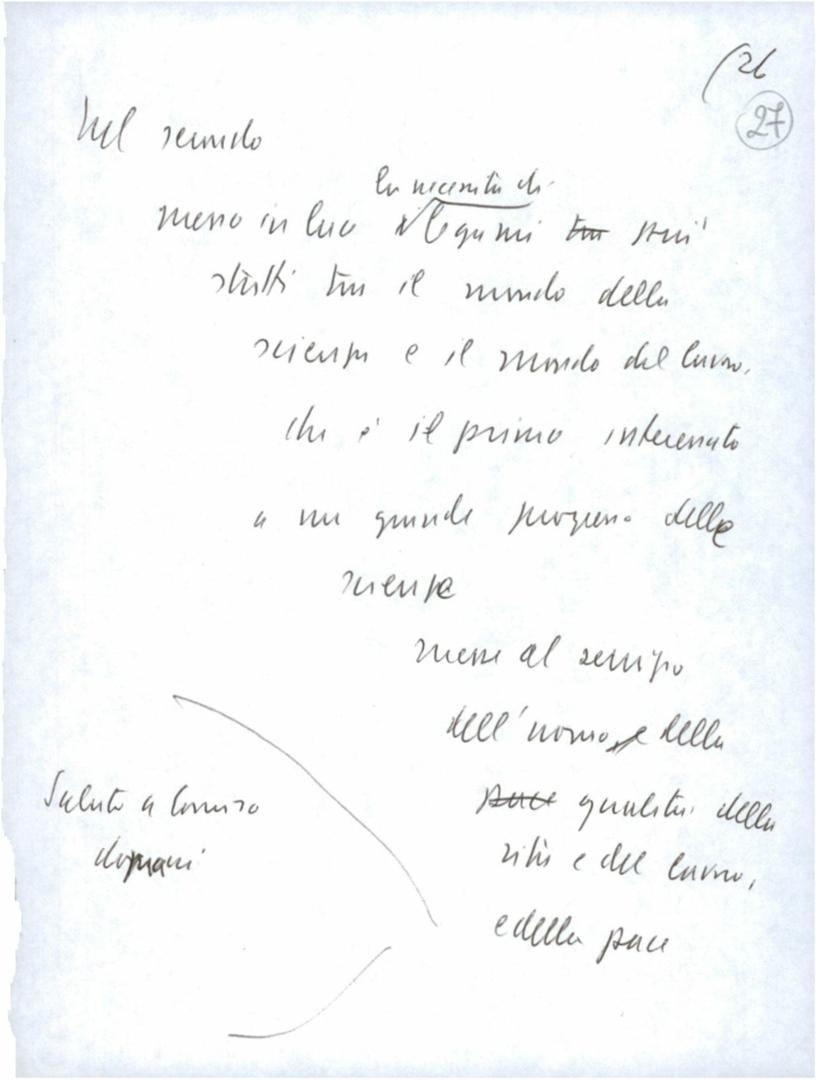 (26
27
Nel secondo
la necessità di
messo in luce legami tra più
stretti tra il mondo della
scienza e il mondo del lavoro,
che è il primo interessato
a un grande progresso della
scienza
messe al servizio
dell'uomo, e della
pace qualità della
vita e del lavoro,
e della pace
Saluto a
domani